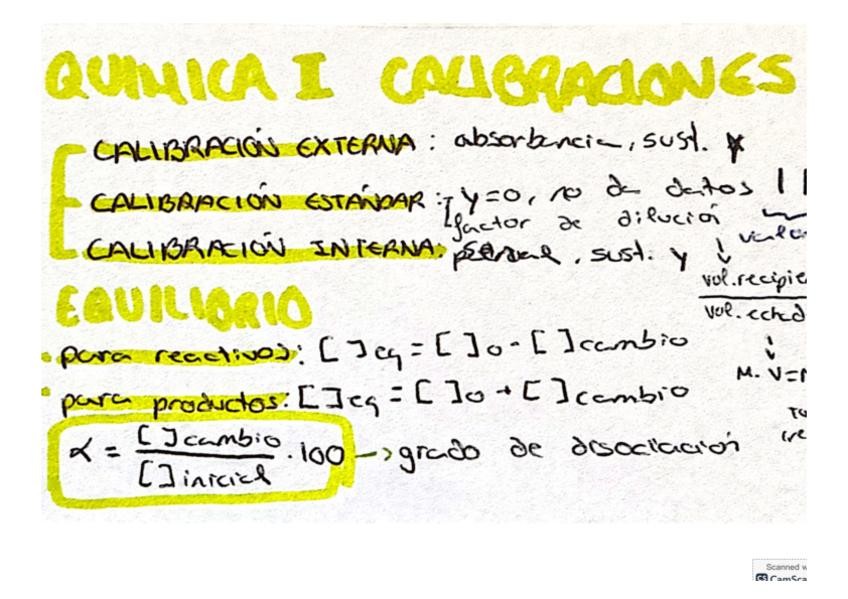 QUIMICA I CALIBRACIONES
CALIBRACIÓN EXTERNA: absorbancia, sust. x
CALIBRACIÓN ESTÁNDAR: y=0, no da datos | |
factor de dilución
CALIBRACIÓN INTERNA: , sust. y ↓
vol.recipie
vol.echad
↓
M. V=
EQUILIBRIO
• para reactivos: [ ]eq = [ ]o - [ ]cambio
• para productos: [ ]eq = [ ]o + [ ]cambio
α = [ ]cambio / [ ]inicial . 100 -> grado de disociación
Scanned w
CS CamSca